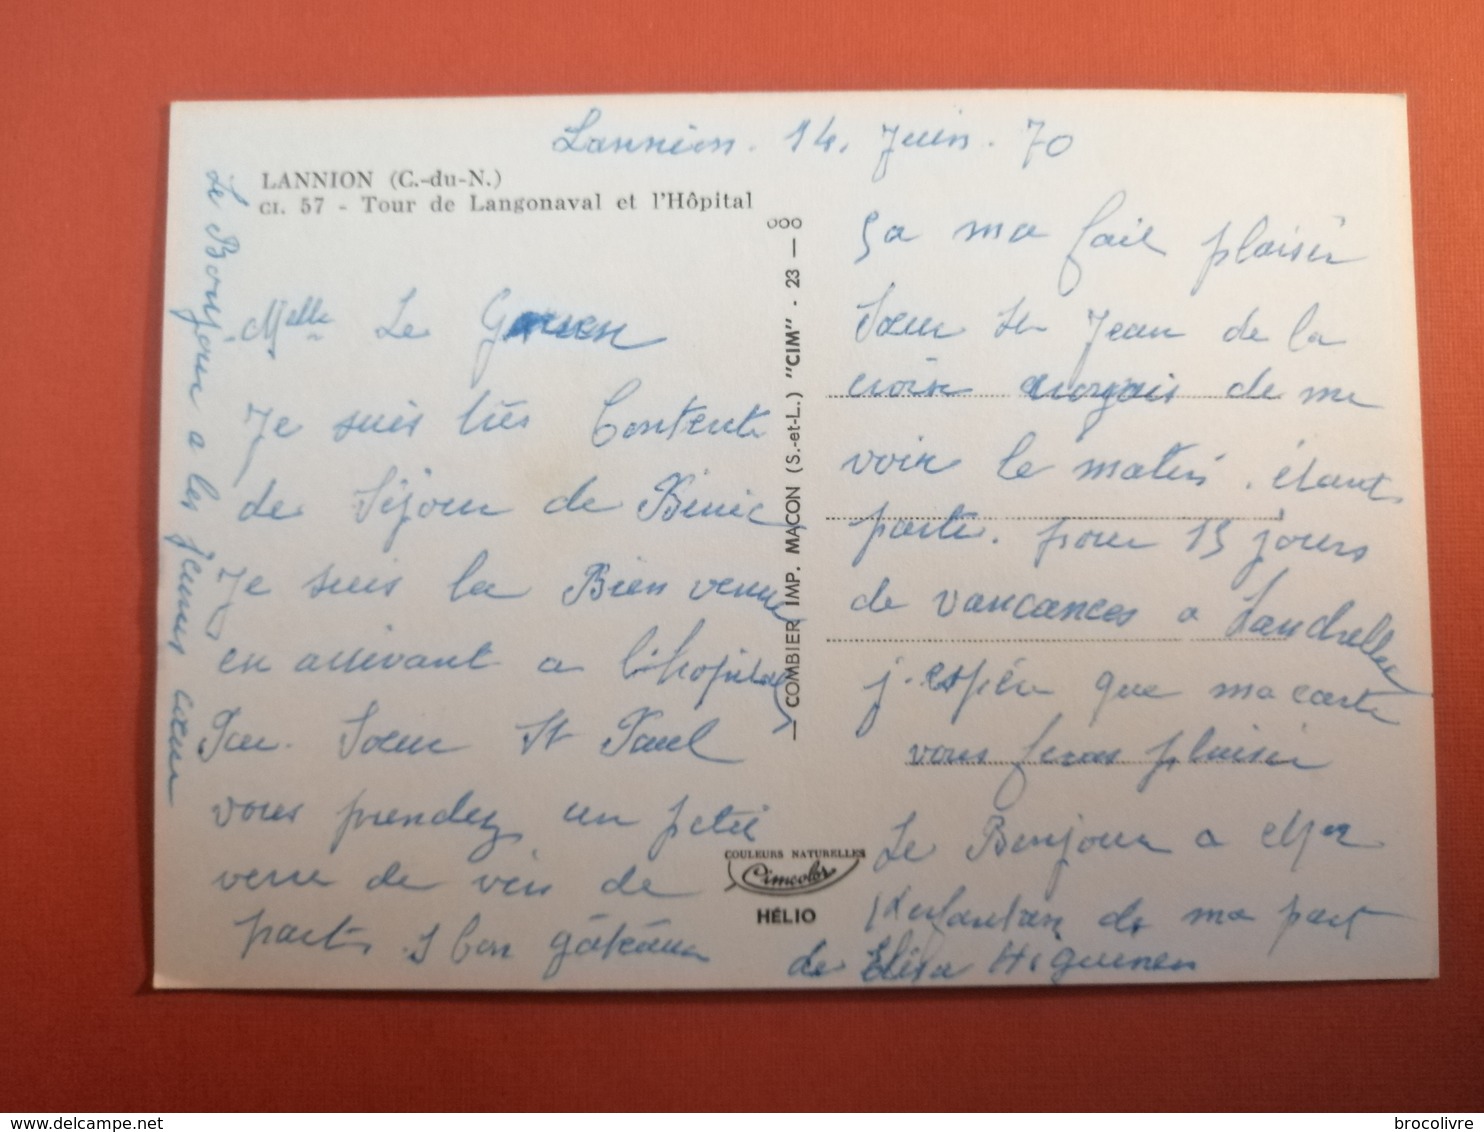 Lannion. 14. Juin. 70
LANNION (C.-du-N.)
CI. 57 - Tour de Langonaval et l'Hôpital
Melle Le
Je suis très Contente
de Séjour de Binic
Je suis la Bien venue
en arrivant a l'hopital
Par. Sœur St Paul
vous prendez un petit
verre de vin de
parto. 1 bon gâteau
Le Bonjour a les jeunes sœur
— COMBIER IMP. MACON (S.-et-L.) "CIM" - 23 —
COULEURS NATURELLES
Cimcolor
HÉLIO
Sa ma fait plaisir
Sœur St Jean de la
croix de me
voir le matin. étant
partie. pour 15 jours
de vancances a
j'espère que ma carte
vous feras plaisir
Le Bonjour a
de ma part
de Elisa
delcampe.net
brocolivre